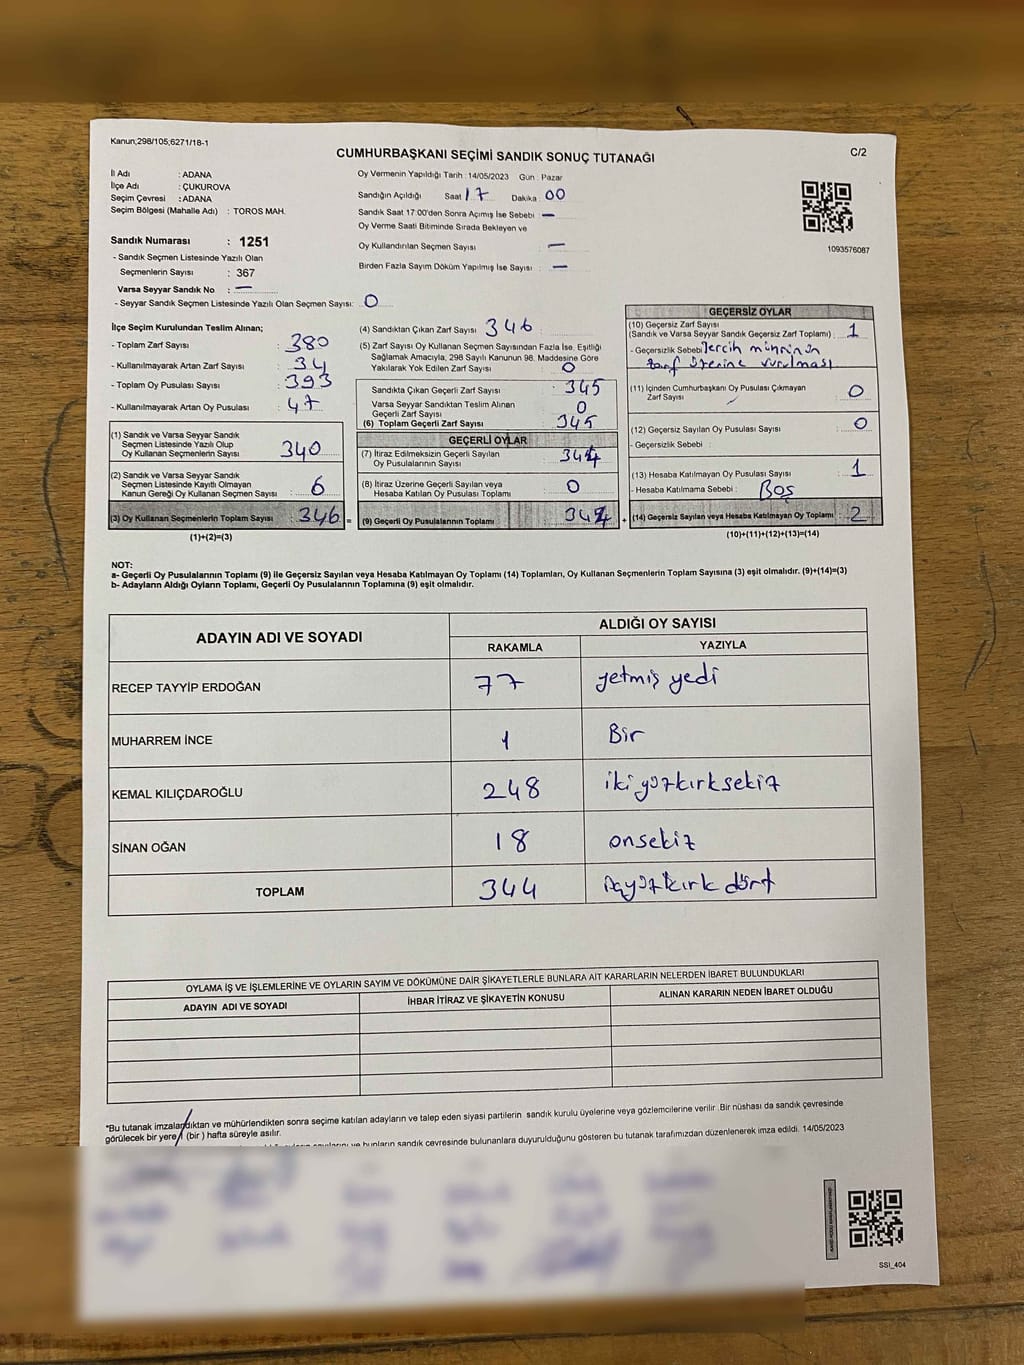 Kanun;298/105;6271/18-1
CUMHURBAŞKANI SEÇİMİ SANDIK SONUÇ TUTANAĞI
C/2
İl Adı : ADANA
İlçe Adı : ÇUKUROVA
Seçim Çevresi : ADANA
Seçim Bölgesi (Mahalle Adı) : TOROS MAH.
Sandık Numarası : 1251
- Sandık Seçmen Listesinde Yazılı Olan
Seçmenlerin Sayısı : 367
Varsa Seyyar Sandık No : —
- Seyyar Sandık Seçmen Listesinde Yazılı Olan Seçmen Sayısı: 0
Oy Vermenin Yapıldığı Tarih : 14/05/2023 Gün : Pazar
Sandığın Açıldığı Saat 17 Dakika : 00
Sandık Saat 17:00'den Sonra Açımış İse Sebebi : —
Oy Verme Saati Bitiminde Sırada Bekleyen ve
Oy Kullandırılan Seçmen Sayısı : —
Birden Fazla Sayım Döküm Yapılmış İse Sayısı : —
1093576087
İlçe Seçim Kurulundan Teslim Alınan;
- Toplam Zarf Sayısı : 380
- Kullanılmayarak Artan Zarf Sayısı : 34
- Toplam Oy Pusulası Sayısı : 393
- Kullanılmayarak Artan Oy Pusulası : 47
(1) Sandık ve Varsa Seyyar Sandık
Seçmen Listesinde Yazılı Olup
Oy Kullanan Seçmenlerin Sayısı : 340
(2) Sandık ve Varsa Seyyar Sandık
Seçmen Listesinde Kayıtlı Olmayan
Kanun Gereği Oy Kullanan Seçmen Sayısı : 6
(3) Oy Kullanan Seçmenlerin Toplam Sayısı : 346 =
(1)+(2)=(3)
(4) Sandıktan Çıkan Zarf Sayısı : 346
(5) Zarf Sayısı Oy Kullanan Seçmen Sayısından Fazla İse, Eşitliği
Sağlamak Amacıyla, 298 Sayılı Kanunun 98. Maddesine Göre
Yakılarak Yok Edilen Zarf Sayısı : 0
Sandıkta Çıkan Geçerli Zarf Sayısı : 345
Varsa Seyyar Sandıktan Teslim Alınan
Geçerli Zarf Sayısı : 0
(6) Toplam Geçerli Zarf Sayısı : 345
GEÇERLİ OYLAR
(7) İtiraz Edilmeksizin Geçerli Sayılan
Oy Pusulalarının Sayısı : 344
(8) İtiraz Üzerine Geçerli Sayılan veya
Hesaba Katılan Oy Pusulası Toplamı : 0
(9) Geçerli Oy Pusulalarının Toplamı : 344 +
GEÇERSİZ OYLAR
(10) Geçersiz Zarf Sayısı
(Sandık ve Varsa Seyyar Sandık Geçersiz Zarf Toplamı) : 1
- Geçersizlik Sebebi : Tercih mührünün
zarf üzerine vurulması
(11) İçinden Cumhurbaşkanı Oy Pusulası Çıkmayan
Zarf Sayısı : 0
(12) Geçersiz Sayılan Oy Pusulası Sayısı : 0
- Geçersizlik Sebebi :
(13) Hesaba Katılmayan Oy Pusulası Sayısı : 1
- Hesaba Katılmama Sebebi : Boş
(14) Geçersiz Sayılan veya Hesaba Katılmayan Oy Toplamı : 2
(10)+(11)+(12)+(13)=(14)
NOT:
a- Geçerli Oy Pusulalarının Toplamı (9) ile Geçersiz Sayılan veya Hesaba Katılmayan Oy Toplamı (14) Toplamları, Oy Kullanan Seçmenlerin Toplam Sayısına (3) eşit olmalıdır. (9)+(14)=(3)
b- Adayların Aldığı Oyların Toplamı, Geçerli Oy Pusulalarının Toplamına (9) eşit olmalıdır.
ADAYIN ADI VE SOYADI
ALDIĞI OY SAYISI
RAKAMLA YAZIYLA
RECEP TAYYİP ERDOĞAN 77 yetmiş yedi
MUHARREM İNCE 1 Bir
KEMAL KILIÇDAROĞLU 248 iki yüz kırk sekiz
SİNAN OĞAN 18 onsekiz
TOPLAM 344 üçyüz kırk dört
OYLAMA İŞ VE İŞLEMLERİNE VE OYLARIN SAYIM VE DÖKÜMÜNE DAİR ŞİKAYETLERLE BUNLARA AİT KARARLARIN NELERDEN İBARET BULUNDUKLARI
ADAYIN ADI VE SOYADI İHBAR İTİRAZ VE ŞİKAYETİN KONUSU ALINAN KARARIN NEDEN İBARET OLDUĞU
*Bu tutanak imzalandıktan ve mühürlendikten sonra seçime katılan adayların ve talep eden siyasi partilerin sandık kurulu üyelerine veya gözlemcilerine verilir .Bir nüshası da sandık çevresinde
görülecek bir yere (bir ) hafta süreyle asılır.
ve bunların sandık çevresinde bulunanlara duyurulduğunu gösteren bu tutanak tarafımızdan düzenlenerek imza edildi. 14/05/2023
SSI_404